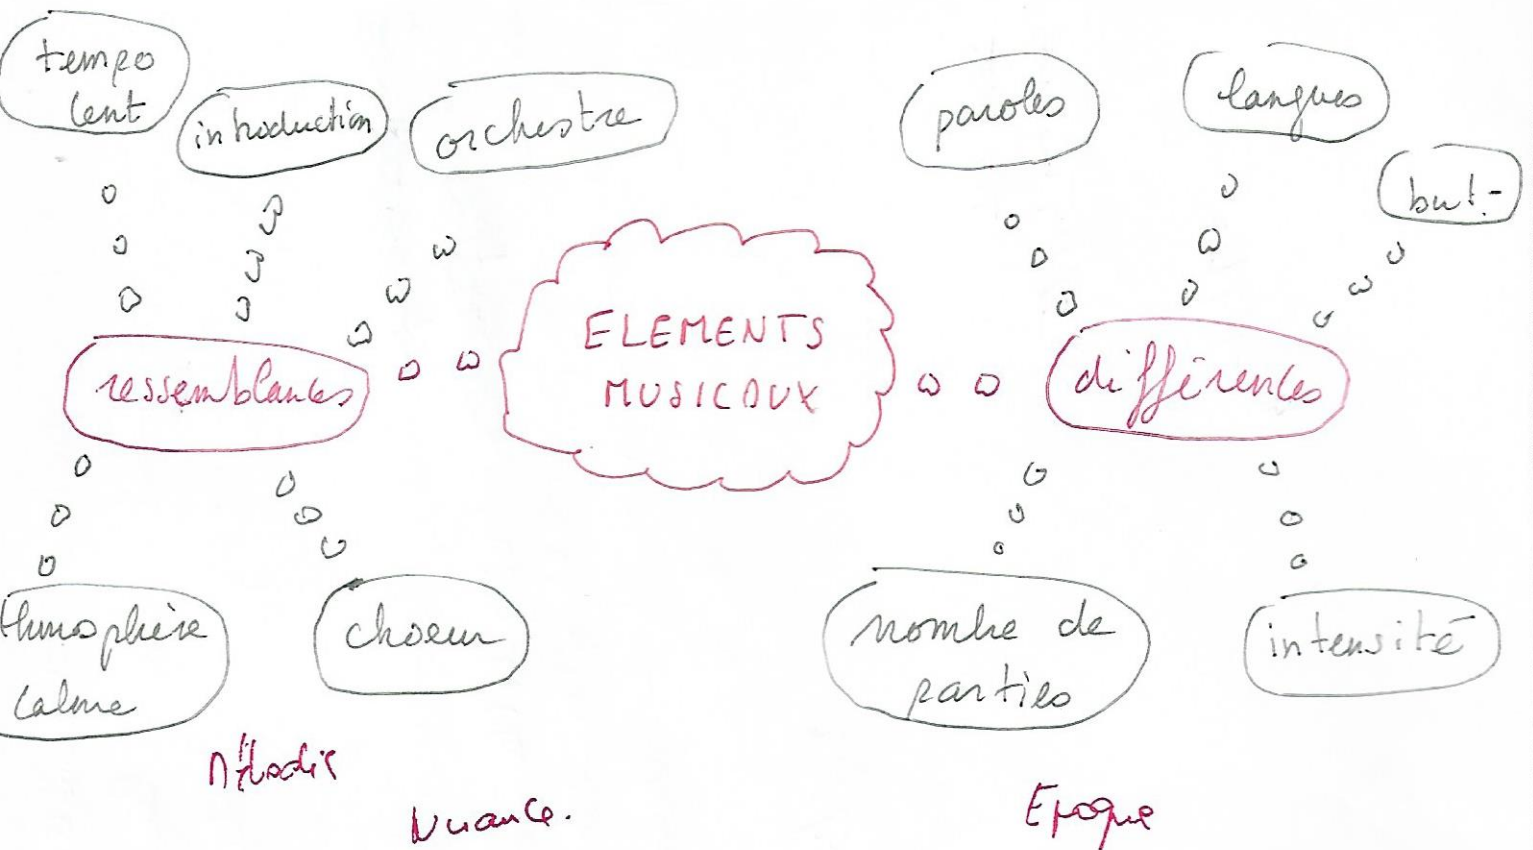 tempo
lent
introduction
orchestre
paroles
langues
but
ELEMENTS
MUSICAUX
ressemblances
différences
thmosphère
calme
choeur
nombre de
parties
intensité
Mélodie
Nuance.
Epoque